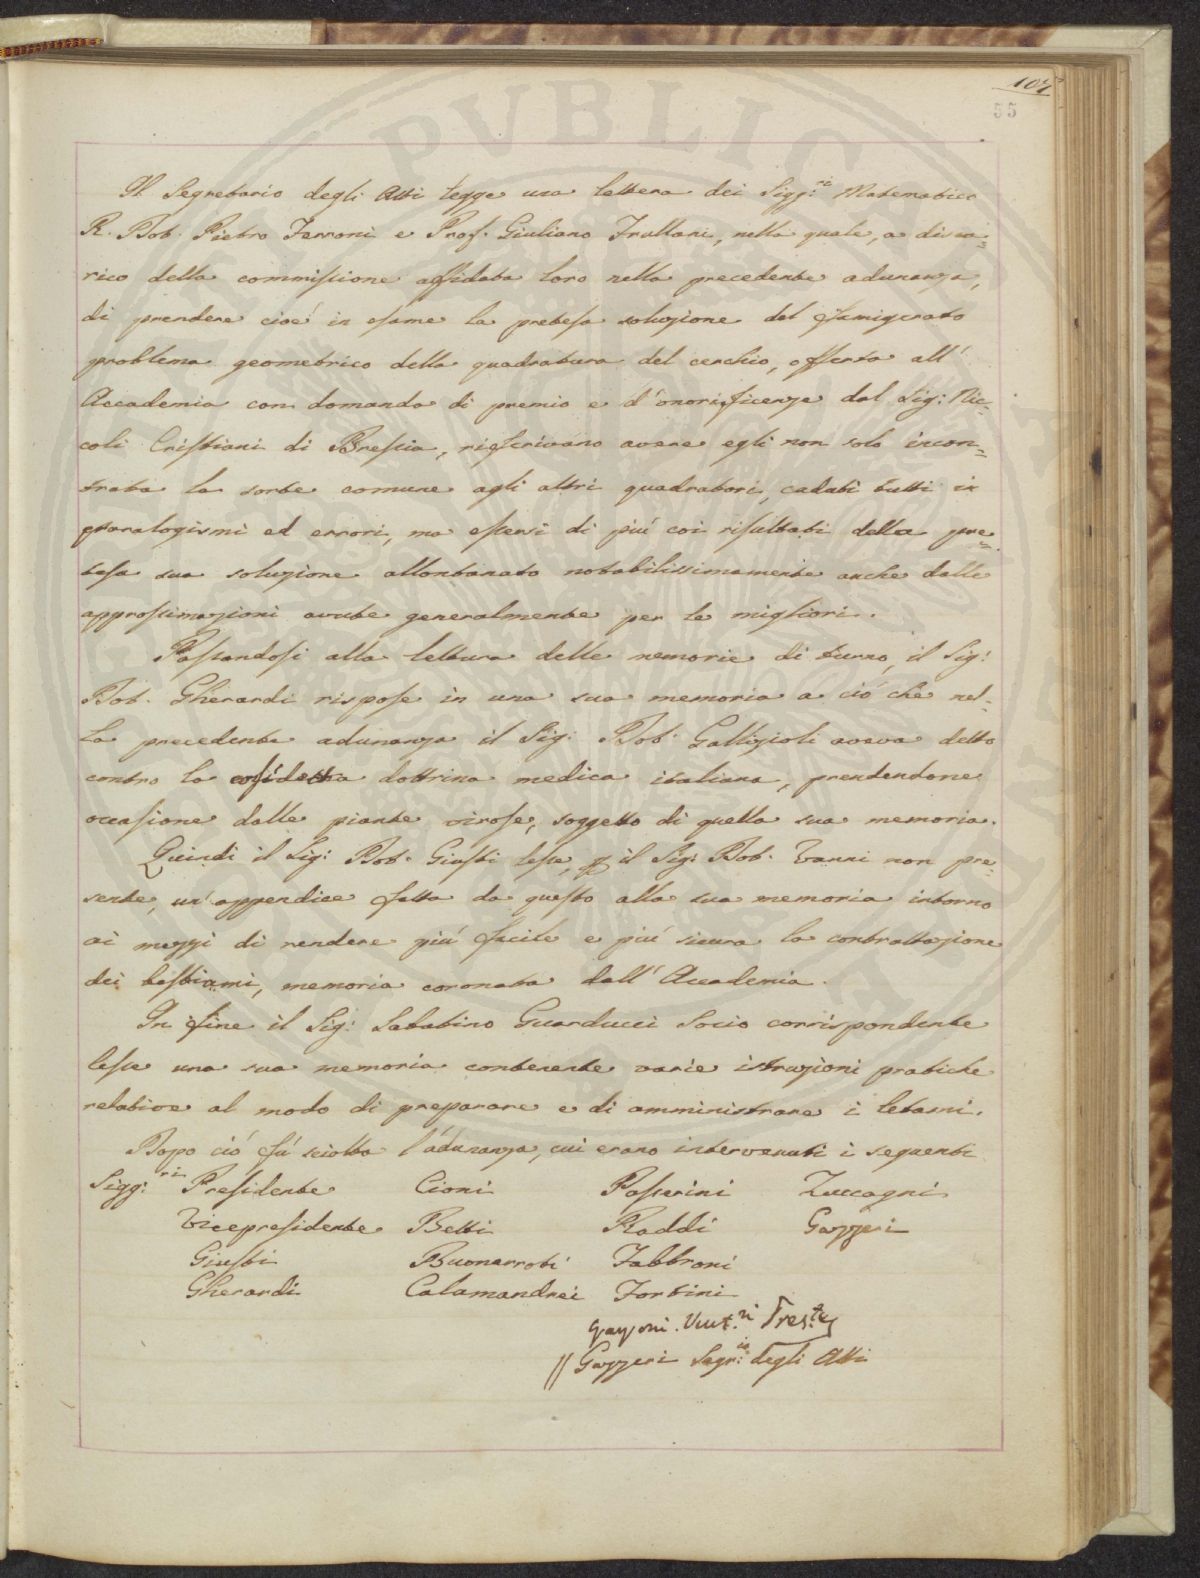 107
55
Il Segretario degli Atti legge una lettera dei Sigg:ri Matematico
R. Dot. Pietro Ferroni e Prof. Giuliano Frullani, nella quale, a disca=
rico della commissione affidata loro nella precedente adunanza,
di prendere cioé in esame la pretesa soluzione del famigerato
problema geometrico della quadratura del cerchio, offerta all'
Accademia con domanda di premio e d'onorificenze dal Sig: Nic=
coli Cristiani di Brescia, riferivano avere egli non solo incon=
trata la sorte comune agli altri quadratori, caduti tutti in
paralogismi ed errori, ma essersi di piú coi risultati della pre=
tesa sua soluzione allontanato notabilissimamente anche dalle
approssimazioni avute generalmente per le migliori.
Passandosi alla lettura delle memorie di turno, il Sig:
Dot. Gherardi rispose in una sua memoria a ció che nel=
la precedente adunanza il Sig: Dot. Gallizioli aveva detto
contro la cosídetta dottrina medica italiana, prendendone
occasione dalle piante virose, soggetto di quella sua memoria.
Quindi il Sig: Dot. Giusti lesse, p il Sig: Dot. Vanni non pre=
sente, un'appendice fatta da questo alla sua memoria intorno
ai mezzi di rendere piú facile e piú sicura la contrattazione
dei bestiami, memoria coronata dall'Accademia.
In fine il Sig: Sabatino Guarducci Socio corrispondente
lesse una sua memoria contenente varie istruzioni pratiche
relative al modo di preparare e di amministrare i letami.
Dopo ció fú sciolta l'adunanza, cui erano intervenuti i seguenti
Sigg:ri Presidente Cioni Passerini Zuccagni
Vicepresidente Betti Raddi Gazzeri
Giusti Buonarroti Fabbroni
Gherardi Calamandrei Tortini
Gazzeri Segr:io degli Atti